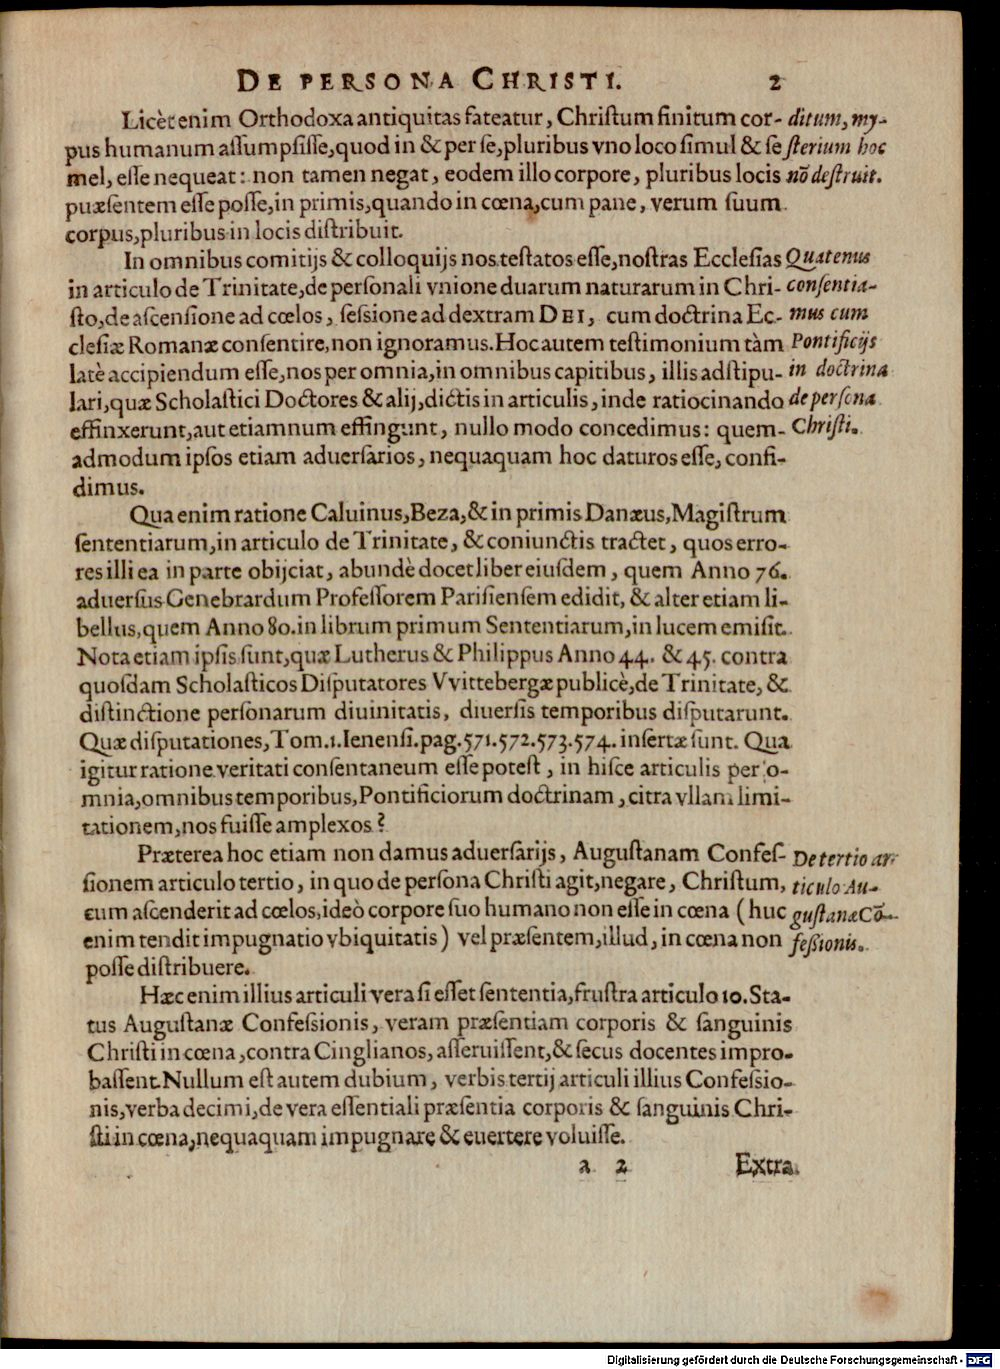 DE PERSONA CHRISTI. 2
Licèt enim Orthodoxa antiquitas fateatur, Christum finitum cor-
pus humanum assumpsisse, quod in & per se, pluribus vno loco simul & se
mel, esse nequeat: non tamen negat, eodem illo corpore, pluribus locis
puæsentem esse posse, in primis, quando in cœna, cum pane, verum suum
corpus, pluribus in locis distribuit.
ditum, my-
sterium hoc
nō destruit.
In omnibus comitijs & colloquijs nos testatos esse, nostras Ecclesias
in articulo de Trinitate, de personali vnione duarum naturarum in Chri-
sto, de ascensione ad cœlos, sessione ad dextram DEI, cum doctrina Ec-
clesiæ Romanæ consentire, non ignoramus. Hoc autem testimonium tàm
latè accipiendum esse, nos per omnia, in omnibus capitibus, illis adstipu-
lari, quæ Scholastici Doctores & alij, dictis in articulis, inde ratiocinando
effinxerunt, aut etiamnum effingunt, nullo modo concedimus: quem-
admodum ipsos etiam aduersarios, nequaquam hoc daturos esse, confi-
dimus.
Quatenus
consentia-
mus cum
Pontificijs
in doctrina
de persona
Christi.
Qua enim ratione Caluinus, Beza, & in primis Danæus, Magistrum
sententiarum, in articulo de Trinitate, & coniunctis tractet, quos erro-
res illi ea in parte obijciat, abundè docet liber eiusdem, quem Anno 76.
aduersus Genebrardum Professorem Parisiensem edidit, & alter etiam li-
bellus, quem Anno 80. in librum primum Sententiarum, in lucem emisit.
Nota etiam ipsis sunt, quæ Lutherus & Philippus Anno 44. & 45. contra
quosdam Scholasticos Disputatores Vvittebergæ publicè, de Trinitate, &
distinctione personarum diuinitatis, diuersis temporibus disputarunt.
Quæ disputationes, Tom. 1. Ienensi. pag. 571. 572. 573. 574. insertæ sunt. Qua
igitur ratione veritati consentaneum esse potest, in hisce articulis per o-
mnia, omnibus temporibus, Pontificiorum doctrinam, citra vllam limi-
tationem, nos fuisse amplexos?
Præterea hoc etiam non damus aduersarijs, Augustanam Confes-
sionem articulo tertio, in quo de persona Christi agit, negare, Christum,
cum ascenderit ad cœlos, ideò corpore suo humano non esse in cœna (huc
enim tendit impugnatio vbiquitatis) vel præsentem, illud, in cœna non
posse distribuere.
De tertio ar-
ticulo Au-
gustanæ Cō-
fessionis.
Hæc enim illius articuli vera si esset sententia, frustra articulo 10. Sta-
tus Augustanæ Confessionis, veram præsentiam corporis & sanguinis
Christi in cœna, contra Cinglianos, asseruissent, & secus docentes impro-
bassent. Nullum est autem dubium, verbis tertij articuli illius Confessio-
nis, verba decimi, de vera essentiali præsentia corporis & sanguinis Chri-
sti in cœna, nequaquam impugnare & euertere voluisse.
a 2 Extra
Digitalisierung gefördert durch die Deutsche Forschungsgemeinschaft - DFG